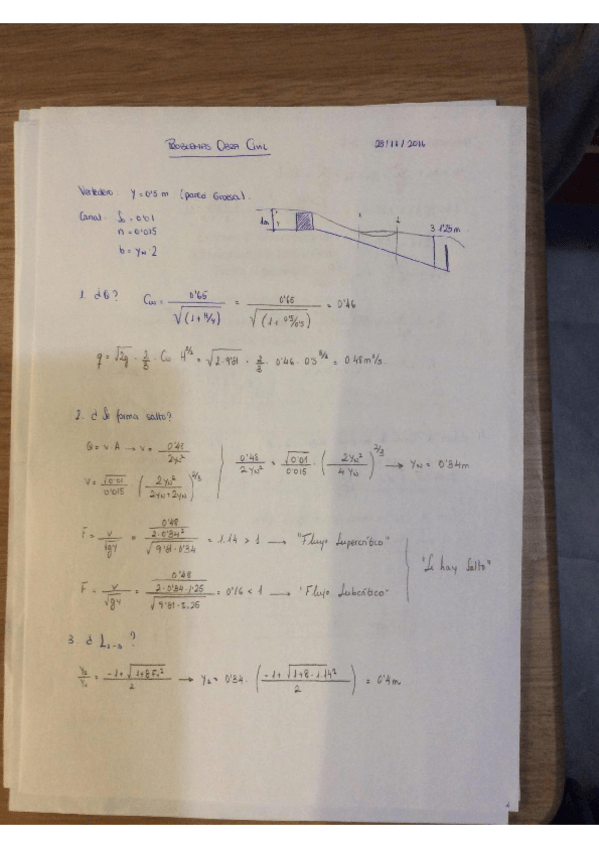 PROBLEMAS OBRA CIVIL
23/11/2016
Vertedero: y = 0'5 m (pared Gruesa).
Canal: So = 0'01
n = 0'015
b = yN 2
1m
3 1'25 m
1. ¿ Q ?
= 0'65 / √(1 + H/y) = 0'65 / √(1 + 0'5/0'5) = 0'46
q = √2g · 2/3 · H^3/2 = √2·9'81 · 2/3 · 0'46 · = 0'48 m³/s.
2. ¿ Se forma salto?
Q = v A → v = 0'48 / 2yN²
V = √0'01 / 0'015 · (2yN² / 2yN+2yN)^2/3
0'48 / 2yN² = √0'01 / 0'015 · (2yN² / 4yN)^2/3 → yN = 0'34m
F = v / √gy = (0'48 / 2·0'34²) / √9'81·0'34 = 1.14 > 1 → "Flujo Supercrítico"
F = v / √gy = (0'48 / 2·0'34·1.25) / √9'81·1.25 = 0'16 < 1 → "Flujo Subcrítico"
"Si hay Salto"
3. ¿ L ?
= (-1 + √1+8F²) / 2 → y2 = 0'34 · ((-1 + √1+8·1.14²) / 2) = 0'4m